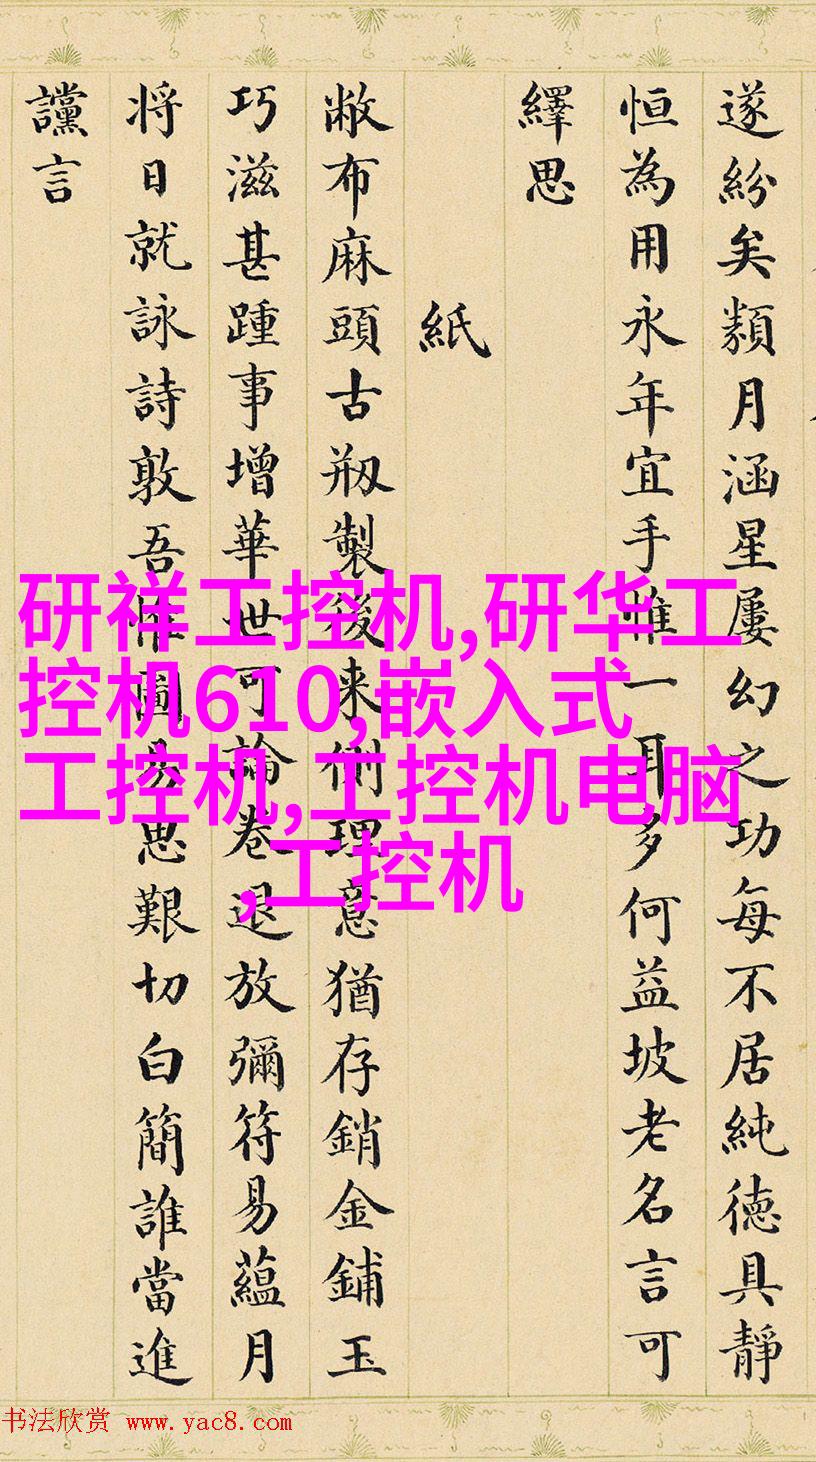 遂紛矣類月涵星屢幻之功每不居純德具靜
恒為用永年宜手惟一耳多何益坡老名言可
繹思
紙
敝布麻頭古剏製後来側理意猶存銷金鋪玉
巧滋甚踵事增華世可論卷退放彌符易蘊月
将日就詠詩敦吾惟圖易思艱切白簡誰當進
讜言
研祥工控机,研华工
控机610,嵌入式
工控机,工控机电脑
,工控机
书法欣赏 www.yac8.com